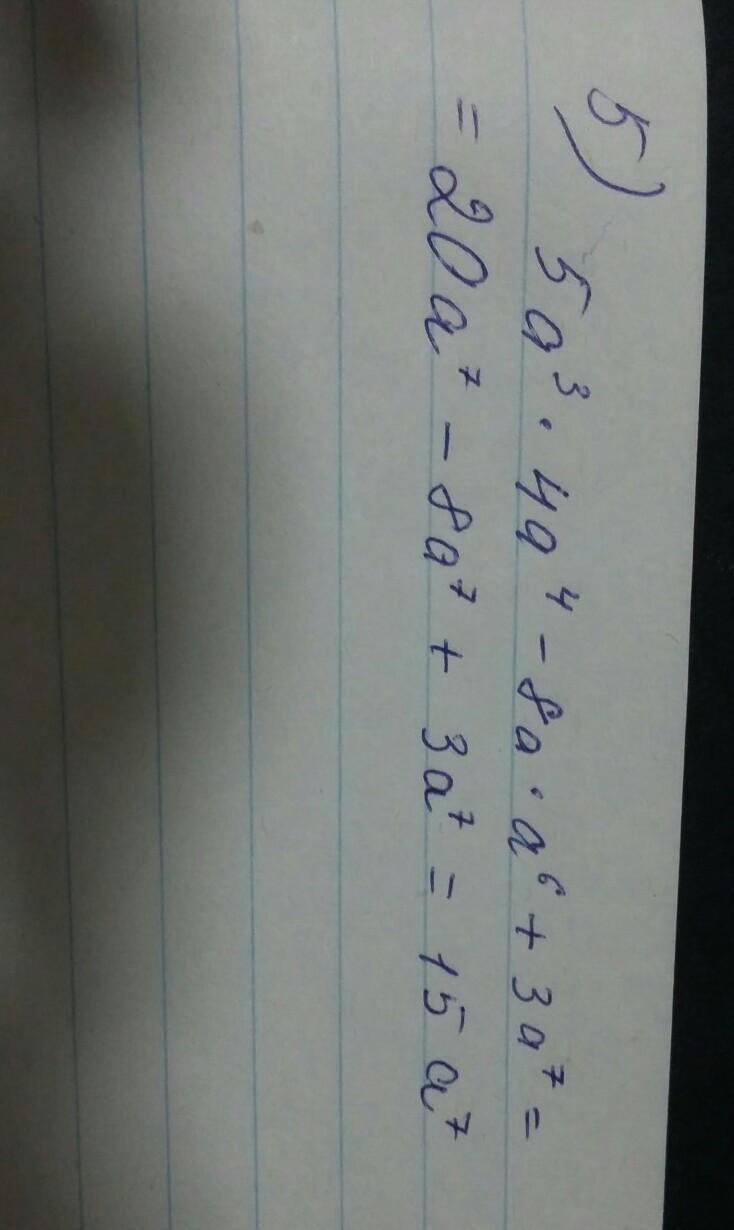 5) 5a³ · 4a⁴ - 8a · a⁶ + 3a⁷ =
= 20a⁷ - 8a⁷ + 3a⁷ = 15a⁷